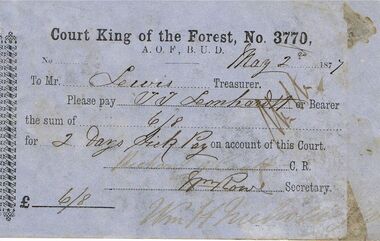 Court King of the Forest, No. 3770,
A. O. F., B. U. D.
No May 2nd 1877
To Mr. Lewis Treasurer.
Please pay Leonhardt or Bearer
the sum of 6/8
for 2 Days Sick Pay on account of this Court.
C. R.
Wm Rowe Secretary.
£ 6/8
Wm H